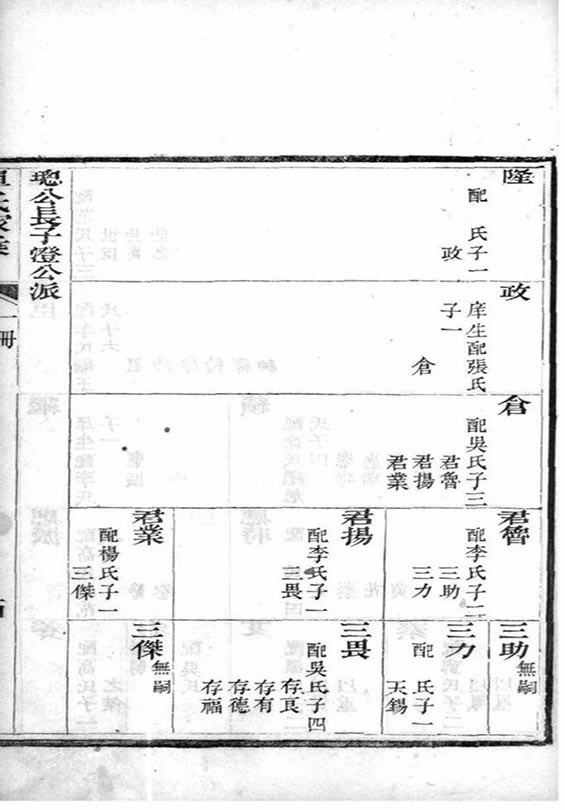 璁公長子澄公派
一冊
隆
配　氏子一
政
政
庠生配張氏
子一
倉
倉
配吳氏子三
君魯
君揚
君業
君魯
配李氏子二
三助
三力
君揚
配李氏子一
三畏
君業
配楊氏子一
三傑
三助
無嗣
三力
配　氏子一
天錫
三畏
配吳氏子四
存良
存有
存德
存福
三傑
無嗣